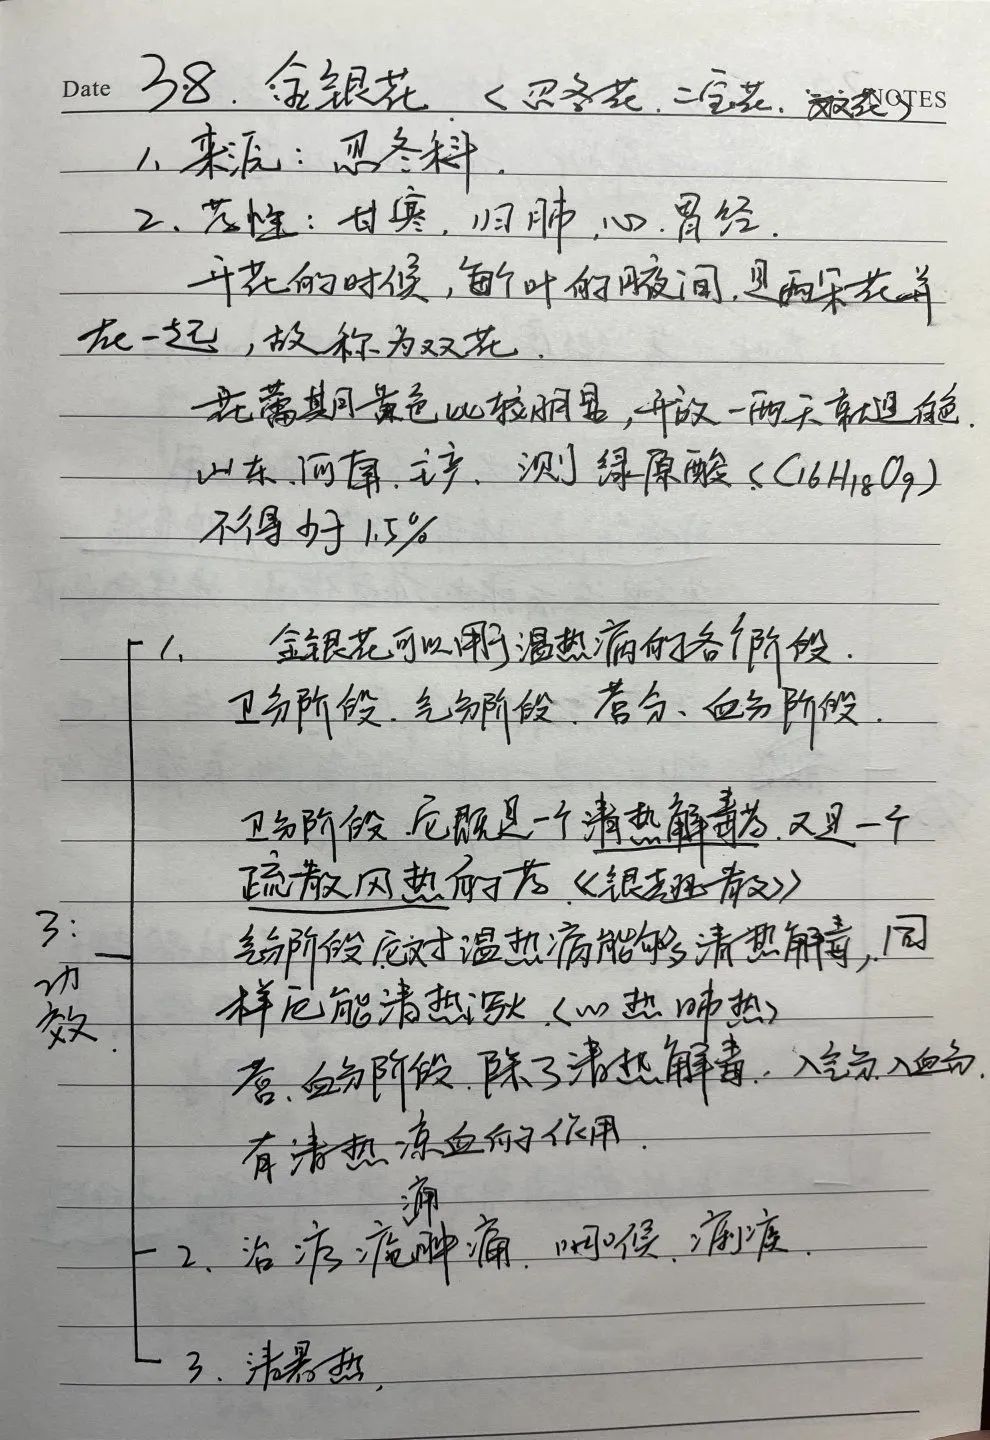 Date 38. 金银花 (忍冬花. 二宝花. 双花) NOTES
1、来源: 忍冬科.
2、药性: 甘寒, 归肺,心.胃经.
开花的时候,每个叶的腋间,是两朵花并
在一起,故称为双花.
花蕾期黄色比较明显,开放一两天就退白色.
山东.河南.主产、测绿原酸(C16H18O9)
不得少于1.5%
1、金银花可以用于温热病的各个阶段.
卫分阶段.气分阶段、营分、血分阶段.
卫分阶段.它既是一个清热解毒药.又是一个
疏散风热的药《银翘散》
气分阶段应对温热病能够清热解毒,同
样它能清热泻火(心热肺热)
营、血分阶段.除了清热解毒.入气分.入血分.
有清热凉血的作用.
3: 功效.
痈
2、治疗疮肿痛.咽候、痢疾.
3、清暑热.